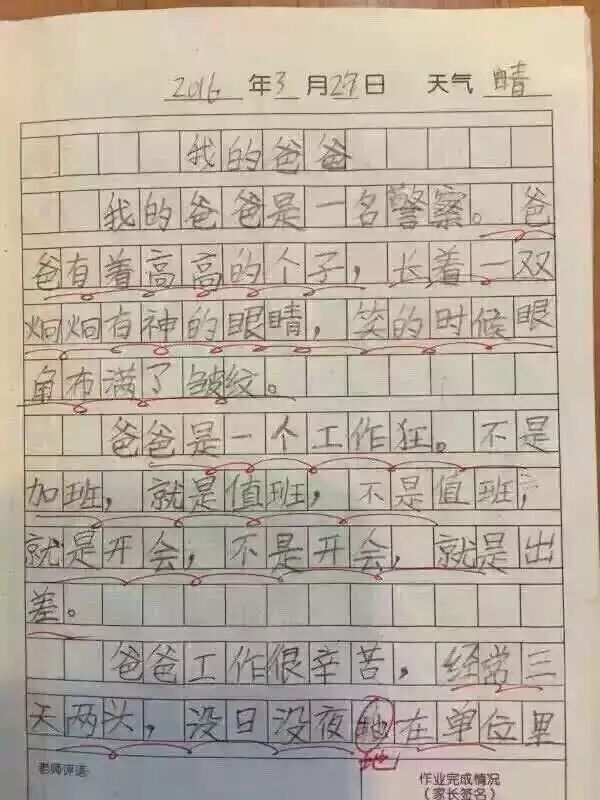 2016 年 3 月 27 日 天气 晴
我的爸爸
我的爸爸是一名警察。爸
爸有着高高的个子，长着一双
炯炯有神的眼睛，笑的时候眼
角布满了皱纹。
爸爸是一个工作狂。不是
加班，就是值班，不是值班，
就是开会，不是开会，就是出
差。
爸爸工作很辛苦，经常三
天两头，没日没夜地在单位里
地
老师评语：
作业完成情况
（家长签名）